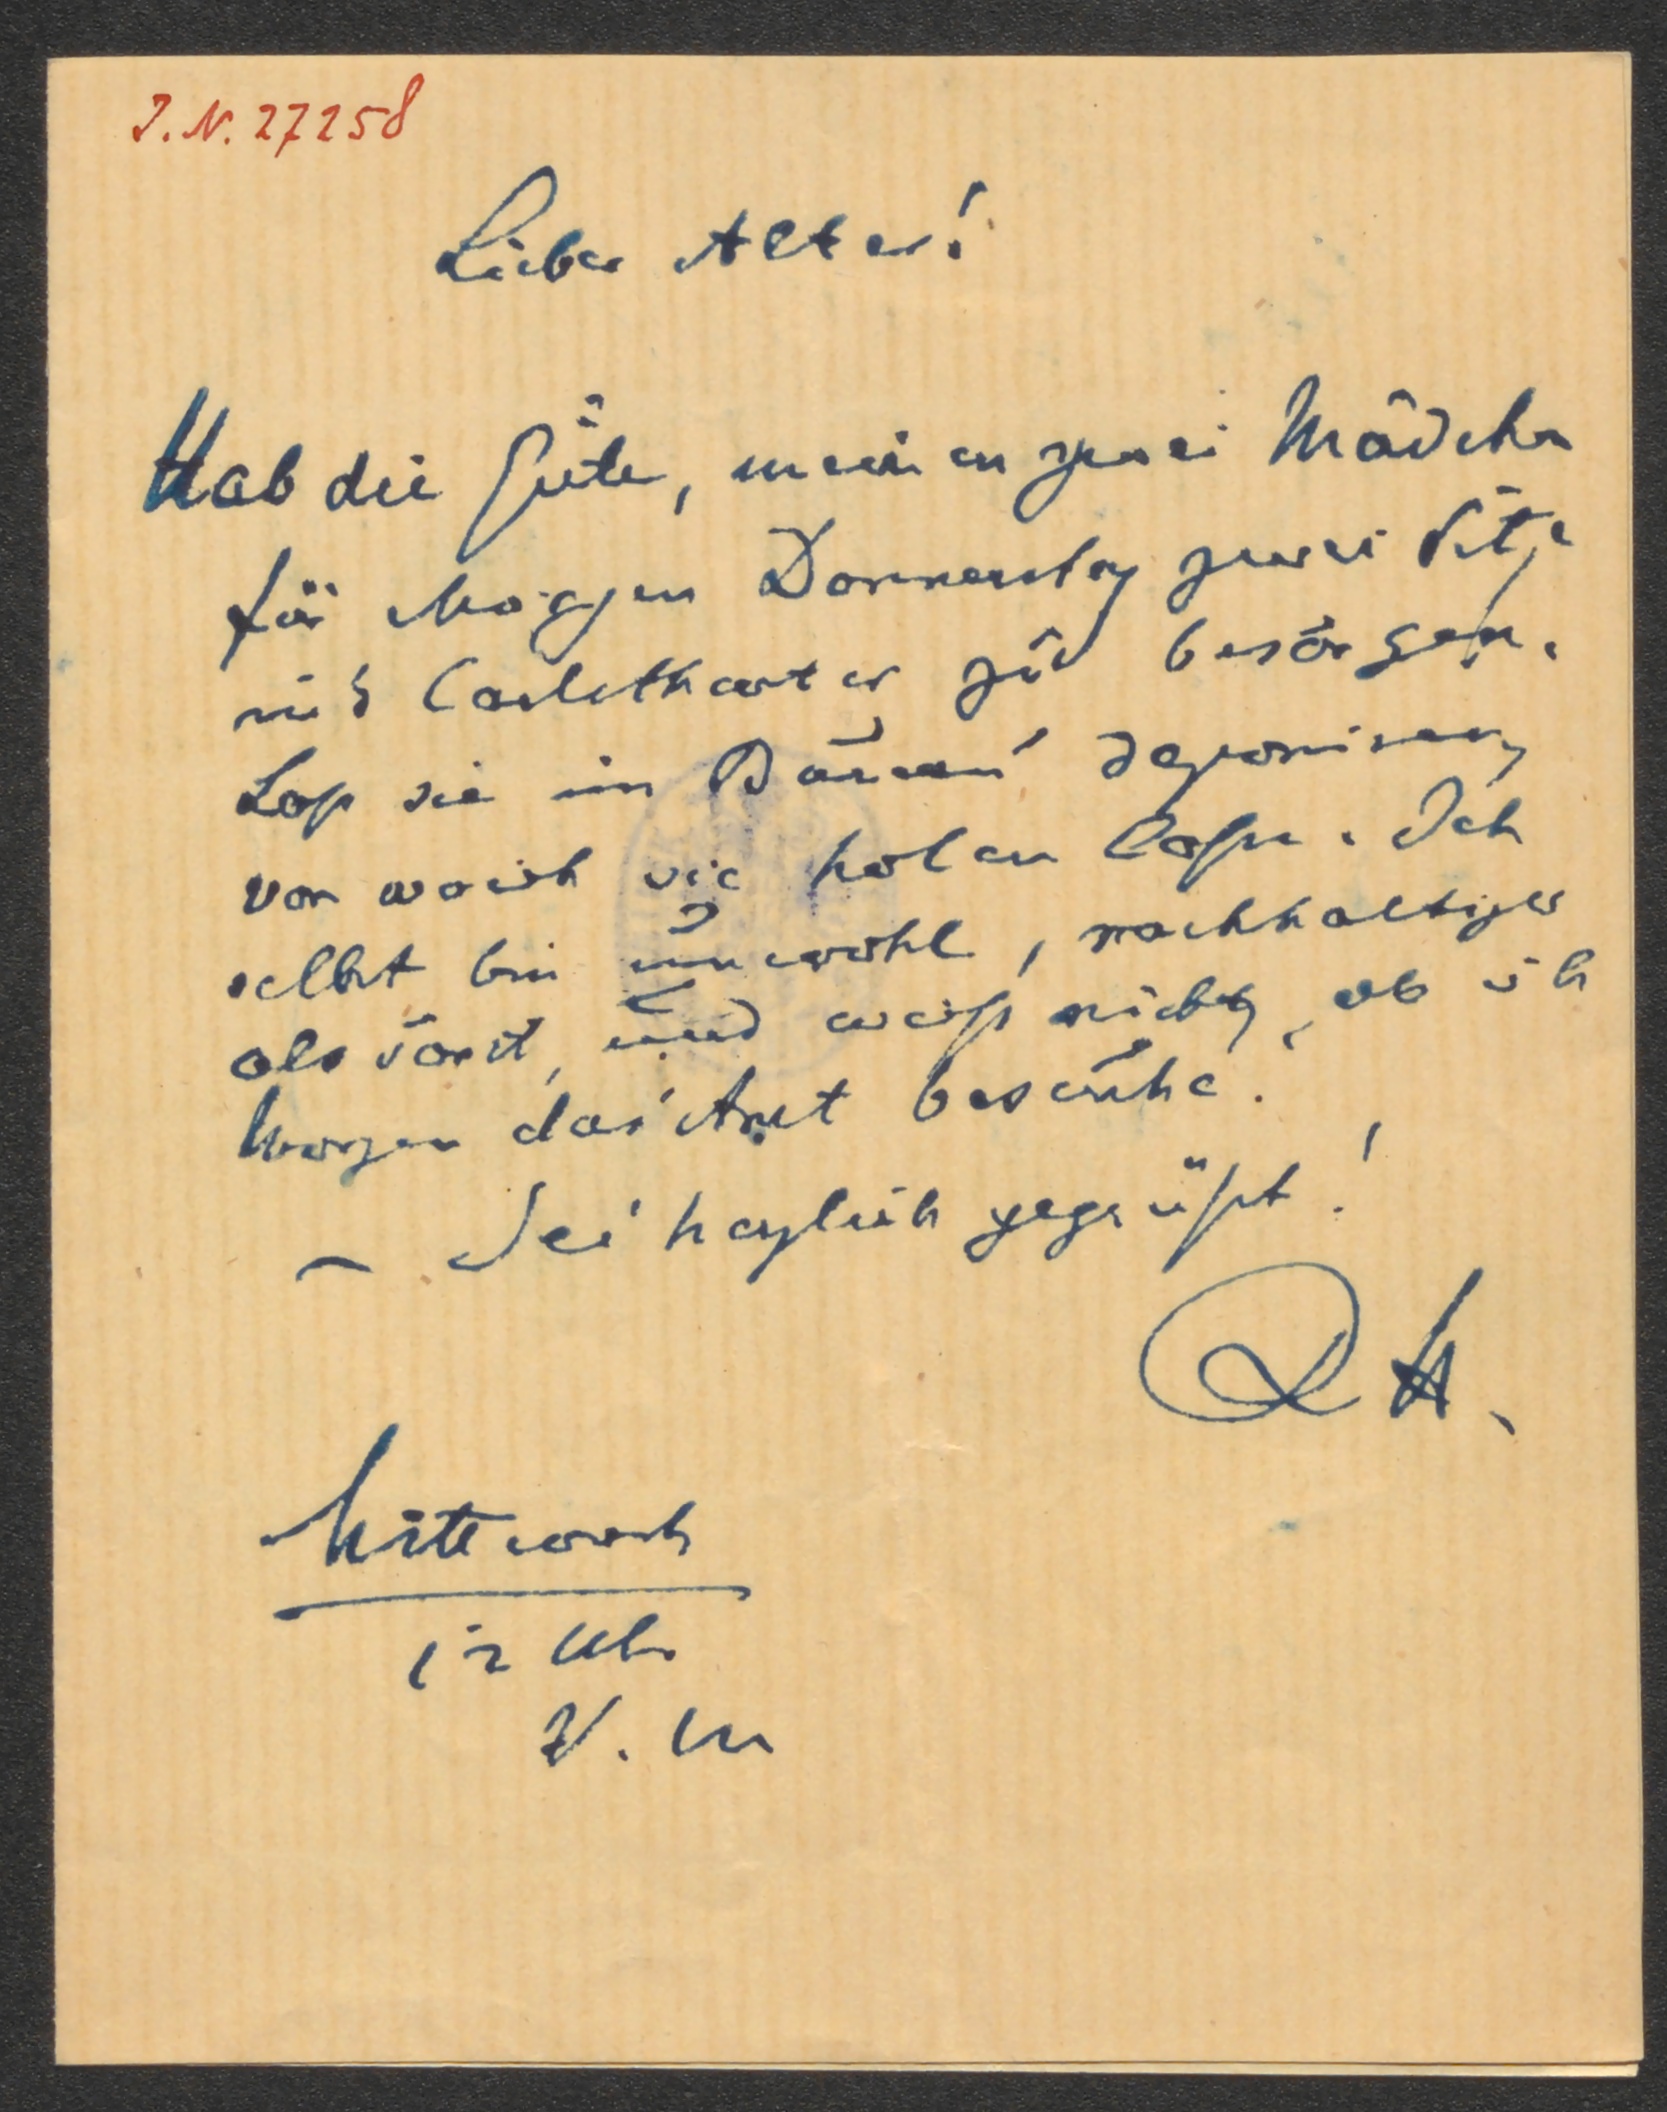 J. N. 27258
Lieber Alter!
Hab die Güte, meinen zwei Mädchen
für Morgen Donnerstag zwei Sitze
ins Carltheater zu besorgen.
Laß sie im Bureau deponieren,
von wo ich sie holen lasse. Ich
selbst bin unwohl, nachhaltiger
als sonst, und weiß nicht, ob ich
Morgen das Amt besuche.
– Sei herzlich gegrüßt!
A.
Mittwoch
12 Uhr
V. M